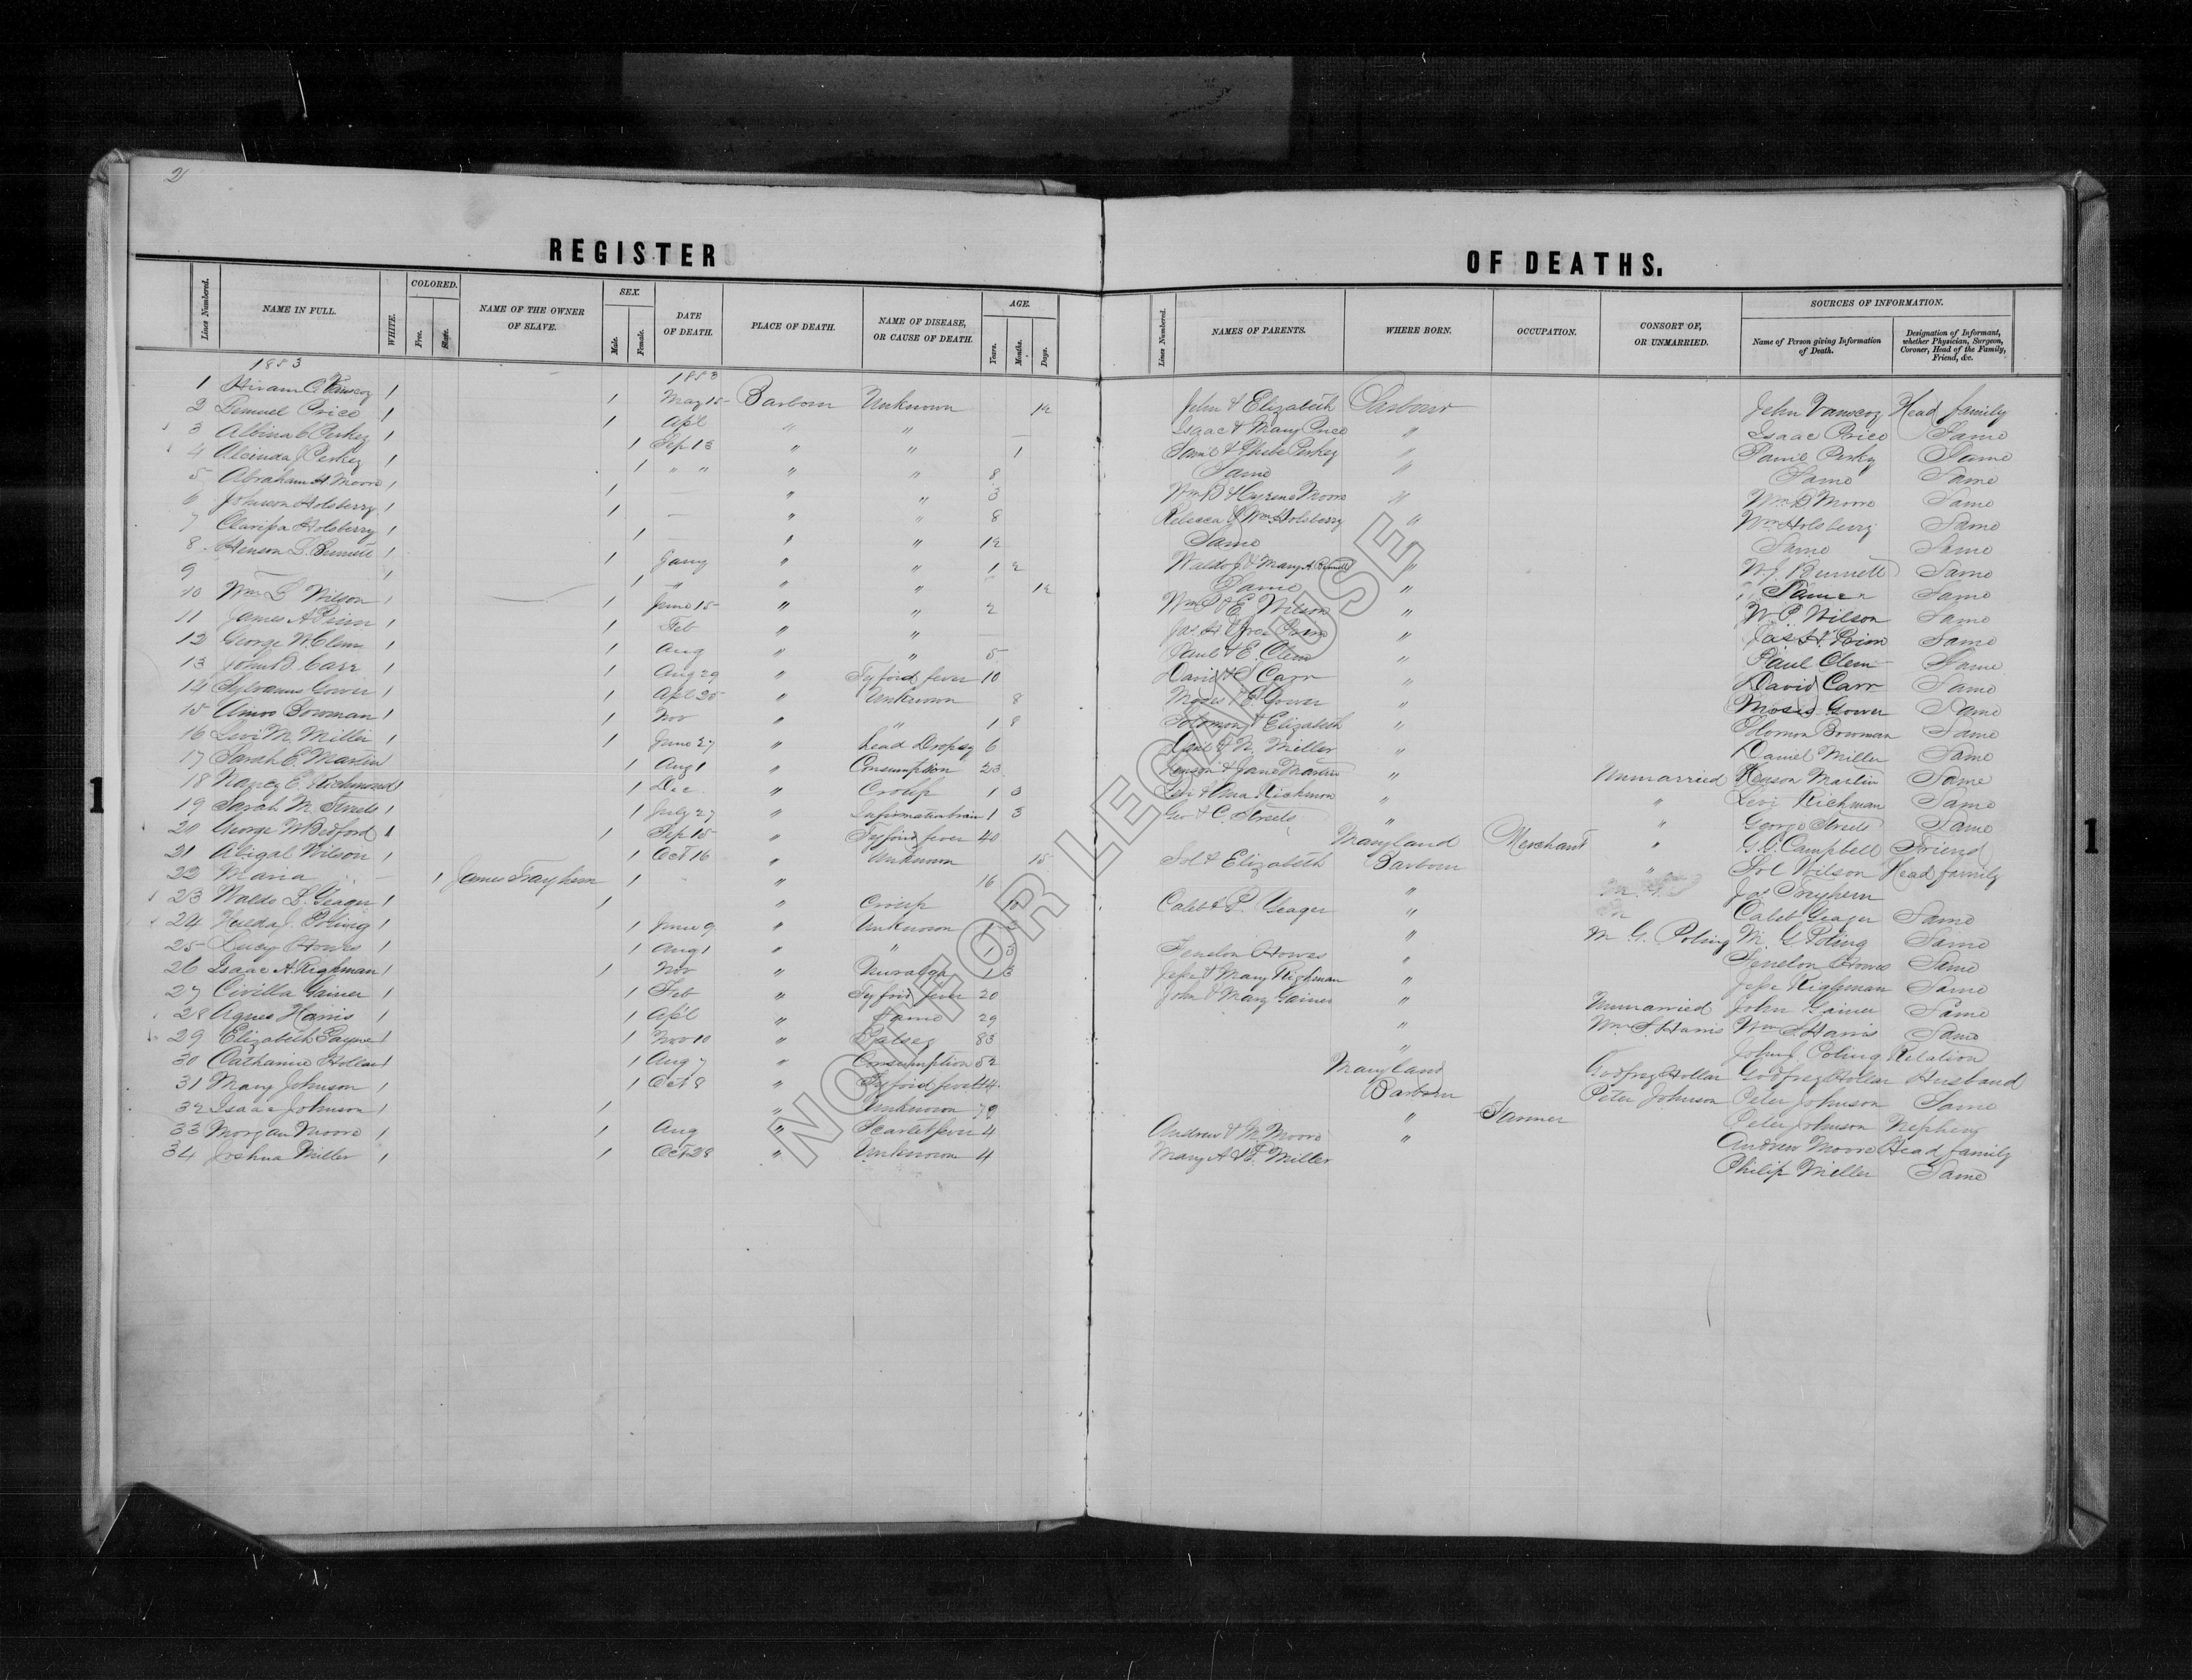 2
REGISTER OF DEATHS.
Lines Numbered. NAME IN FULL. WHITE. COLORED. Free. Slave. NAME OF THE OWNER OF SLAVE. SEX. Male. Female. DATE OF DEATH. PLACE OF DEATH. NAME OF DISEASE, OR CAUSE OF DEATH. AGE. Years. Months. Days. Lines Numbered. NAMES OF PARENTS. WHERE BORN. OCCUPATION. CONSORT OF, OR UNMARRIED. SOURCES OF INFORMATION. Name of Person giving Information of Death. Designation of Informant, whether Physician, Surgeon, Coroner, Head of the Family, Friend, &c.
1853 1853
1 Hiram C Vanscoy 1 1 May 15 Barbour Unknown 12 John & Elizabeth Barbour John Vanscoy Head family
2 Lemuel Price 1 1 Apl " " Isaac & Mary Price " Isaac Price Same
3 Albina C Perkey 1 1 Sep 13 " " 1 Saml & Phebe Perkey " Saml Perkey Same
4 Alcinda J Perkey 1 1 " " " " 8 Same " Same Same
5 Abraham H Moore 1 1 " " 3 Wm D & Cyrene Moore " Wm D Moore Same
6 Johnson Holsberry 1 1 " " 8 Rebeca & Wm Holsberry " Wm Holsberry Same
7 Clarissa Holsberry 1 1 " " 12 Same Same Same
8 Henson L. Bennett 1 1 Jany " " 1 2 Waldo J. & Mary A Bennett " W J. Bennett Same
9 1 1 " " " 12 Same " Same Same
10 Wm L Wilson 1 1 June 15 " " 2 Wm P & E. Wilson " W. P. Wilson Same
11 James A Prim 1 1 Feb " " Jas. H & " Jas H. Same
12 George W. Clem 1 1 Aug " " 5 Paul & E. Clem " Paul Clem Same
13 John D. Carr 1 1 Aug 29 " Tyford fever 10 David & S Carr " David Carr Same
14 Sylvanus Gower 1 1 Apl 20 " Unknown 8 Moses & E. Gower " Moses Gower Same
15 Amos Bowman 1 1 Nov " " 1 8 Solomon & Elizabeth " Solomon Bowman Same
16 Levi M. Miller 1 1 June 27 " head Dropsy 6 Danl & N. Miller " Daniel Miller Same
17 Sarah E. Martin 1 Aug 1 " Consumption 23 Henson & Jane Martin " Unmarried Henson Martin Same
18 Nancy E. Richmond 1 1 Dec. " Croup 1 Levi & Ana Richmon " " Levi Richman Same
19 Sarah M. Streets 1 1 July 27 " Infirmation brain 1 3 Geo & C. Streets " " George Streets Same
20 George W Bedford 1 1 Sep 15 " Tyford fever 40 Maryland Merchant " G. Campbell Friend
21 Abigal Wilson 1 1 Oct 16 " Unknown 15 Sol & Elizabeth Barbour Sol Wilson Head family
22 Maria 1 James Trayhern 1 " 16 " Jas Trayhern
23 Waldo L. Yeager 1 1 " Croup 10 Caleb & P. Yeager " Caleb Yeager Same
24 Hulda J. Poling 1 1 June 9 " Unknown " M. G. Poling M. G Poling Same
25 Lucy Howes 1 1 Aug 1 " " Fenelon Howes " Fenelon Howes Same
26 Isaac A. Righman 1 1 Nov " 1 3 Jesse & Mary Righman " Jesse Righman Same
27 Civilla Gainer 1 1 Feb " Tyford fever 20 John & Mary Gainer " Unmarried John Gainer Same
28 Agnes Harris 1 1 Apl " Same 29 " Wm S. Harris Wm S Harris Same
29 Elizabeth Payne 1 1 Nov 10 " Palsey 83 " John J. Poling Relation
30 Catharine Hollar 1 1 Aug 7 " Consumption 52 Maryland Godfrey Hollar Godfrey Hollar Husband
31 Mary Johnson 1 1 Oct 8 " Tyford fever 44 Barbour Peter Johnson Peter Johnson Same
32 Isaac Johnson 1 1 " Unknown 79 " Farmer Peter Johnson Nephew
33 Morgan Moore 1 1 Aug " Scarlet fever 4 Andrew & M. Moore " Andrew Moore Head family
34 Joshua Miller 1 1 Oct 28 " Unknown 4 Mary A & P. Miller Philip Miller Same
1 1
NOT FOR LEGAL USE